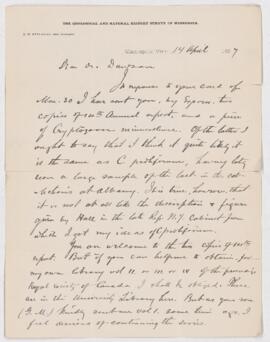 THE GEOLOGICAL AND NATURAL HISTORY SURVEY OF MINNESOTA.
14 April
Dear Dr. Dawson
In response to your card of
Mar. 30 I have sent you, by Express, two
copies of Annual report, and a piece
of Cryptozoon minnesotense. Of the latter I
ought to say that I think it quite likely it
is the same as C. proliferum, having lately
seen a large sample of the last in the col-
lections at Albany. It is true, however, that
it is not at all like the description & figure
given by Hall in the late Rep. N.Y. Cabinet from
which I got my idea of C. proliferum.
You are welcome to the two copies of
report. But if you can help me to obtain for
my own library vol. II. or III. or IV of the
Royal Society of Canada I shall be obliged. There
are in the University Library here. But as you
kindly vol. 1. some time ago, I
feel desirous of continuing the series.